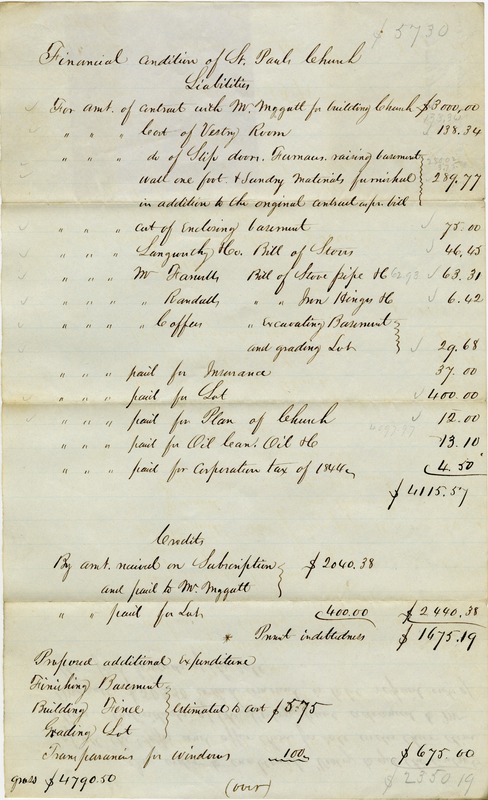 $ 5730
Financial condition of St. Pauls Church
Liabilities
For amt. of contract with Mr. Mygatt for building Church $3000,00
" " " Cost of Vestry Room 138.34
" " " do of Slip doors, Furnaus. raising basement
wall one foot & Sundry Materials furnished 289.77
in addition to the original contract as pr. bill
" " " cost of Enclosing basement 75.00
" " " Co. Bill of Stoves 46,45
" " " Mr Bill of Stove pipe &c 63.31
" " " " Randalls " " Iron Hinges &c 6.42
" " " " Coffees " Excavating Basement
and grading Lot 29.68
" " " paid for Insurance 37.00
" " " paid for Lot 400.00
" " " paid for Plan of Church 12.00
" " " paid for Oil Cans. Oil &c 13.10
" " " paid for Corporation tax of 1844 4.50
$ 4115.57
Credits
By amt. received on Subscription $ 2040.38
and paid to Mr. Mygatt
" " paid for Lot 400.00 $ 2440.38
* Present indebtedness $ 1675.19
Proposed additional expenditure
Finishing Basement
Building Fence estimated to cost $ 575
Grading Lot
Transparancies for windows 100 $ 675 00
gross $ 4790.50 (over) $ 2350 19